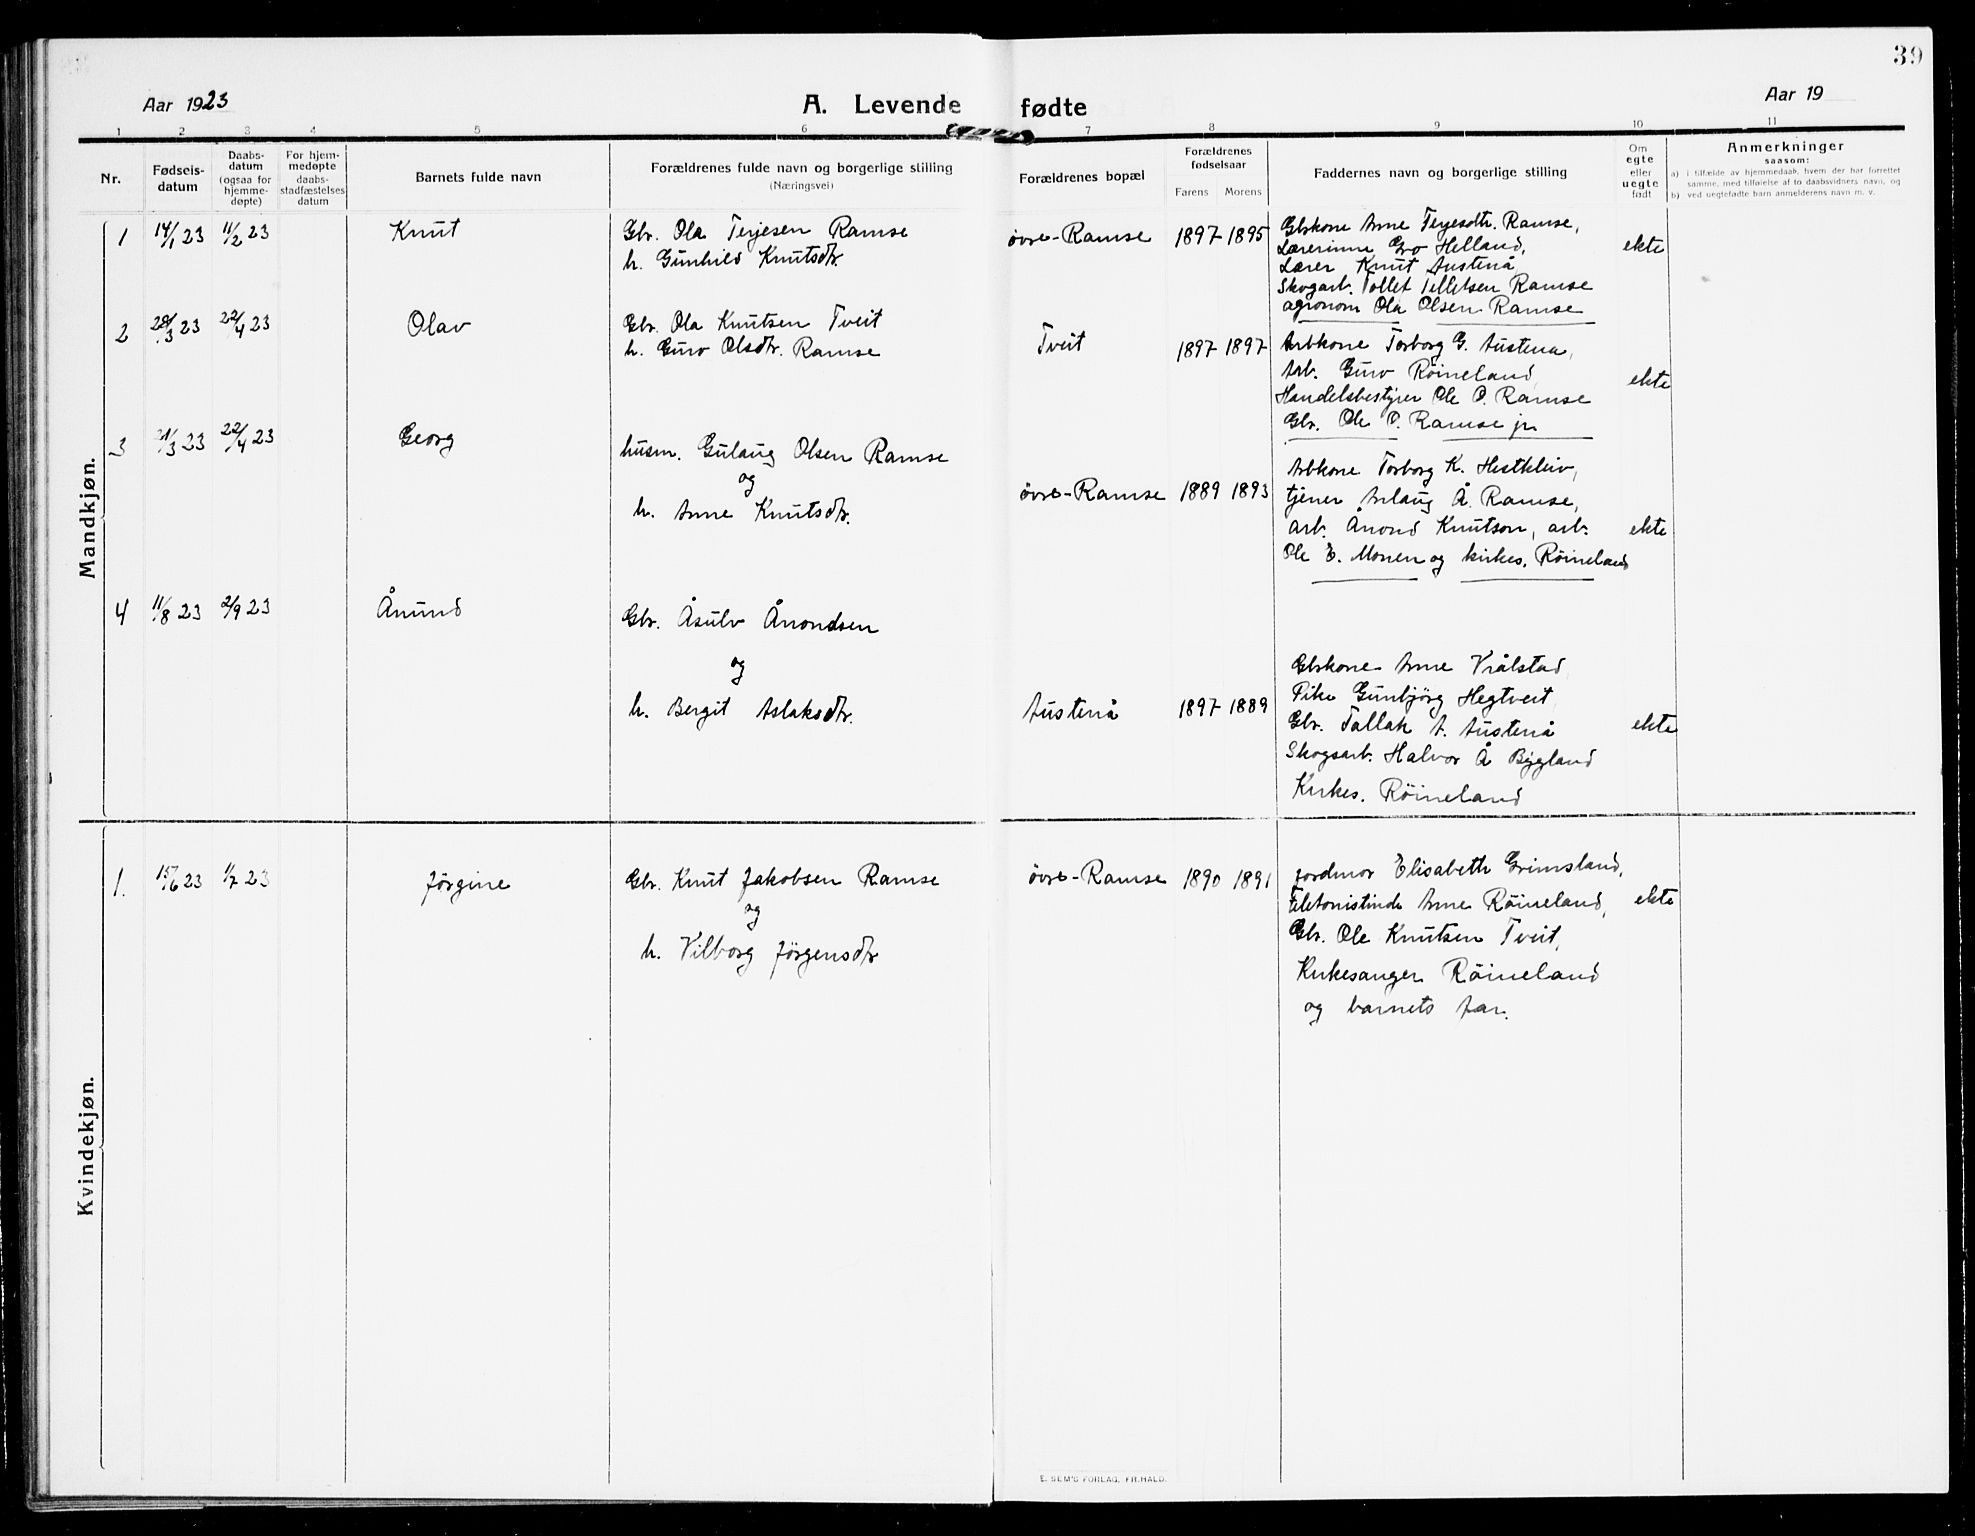 39
Aar 1923
A. Levende fødte
Aar 19
1 2 3 4 5 6 7 8 9 10 11
Nr.
Fødsels-
datum
Daabs-
datum
(ogsaa for
hjemme-
døpte)
For hjem-
medøpte
daabs-
stadfæstelses
datum
Barnets fulde navn
Forældrenes fulde navn og borgerlige stilling
(Næringsvei)
Forældrenes bopæl
Forældrenes
fødselsaar
Farens Morens
Faddernes navn og borgerlige stilling
Om
egte
eller
uegte
født
Anmerkninger
saasom:
a) i tilfælde av hjemmedaab, hvem der har forrettet
samme, med tilføielse af to daabsvidners navn, og
b) ved uegtefødte barn anmelderens navn m. v.
Mandkjøn.
1 14/1 23 11/2 23 Knut
Gbr. Ola Terjesen Ramse
h. Gunhild Knutsdtr.
øvre-Ramse 1897 1895
Gbrkone Anne Terjesdtr. Ramse,
Lærerinne Gro Helland,
Lærer Knut Austenå
Skogarb. Tollef Tellefsen Ramse
agronom Ola Olsen Ramse
ekte
2 28/3 23 22/4 23 Olav
Gbr. Ola Knutsen Tveit
h. Guro Olsdtr. Ramse
Tveit 1897 1897
Arbkone Torborg G. Austenå,
Arb. Guro Röineland,
Handelsbestyrer Ole O. Ramse
Gbr. Ole O. Ramse jr.
ekte
3 21/3 23 22/4 23 Georg
husm. Gulaug Olsen Ramse
og
h. Anne Knutsdtr.
øvre-Ramse 1889 1893
Arbkone Torborg K. Hestkleiv,
tjener Arlaug Å. Ramse,
arb. Ånond Knutson, arb.
Ole E. Monen og kirkes. Röineland
ekte
4 11/8 23 2/9 23 Ånund
Gbr. Åsulv Ånondsen
og
h. Bergit Aslaksdtr.
Austenå 1897 1889
Gbrkone Anne Vrålstad
Pike Gunbjörg Hegtveit
Gbr. Tallak A. Austenå
Skogsarb. Halvor Å Bygland
Kirkes. Röineland
ekte
Kvindekjøn.
1. 15/6 23 1/7 23 Jørgine
Gbr. Knut Jakobsen Ramse
og
h. Vilborg Jørgensdtr
øvre-Ramse 1890 1891
jordmor Elisabeth Grimsland,
Telefonistinde Anne Röineland,
Gbr. Ole Knutsen Tveit,
Kirkesanger Röineland
og barnets far.
ekte
E. SEM'S FORLAG, FR.HALD.